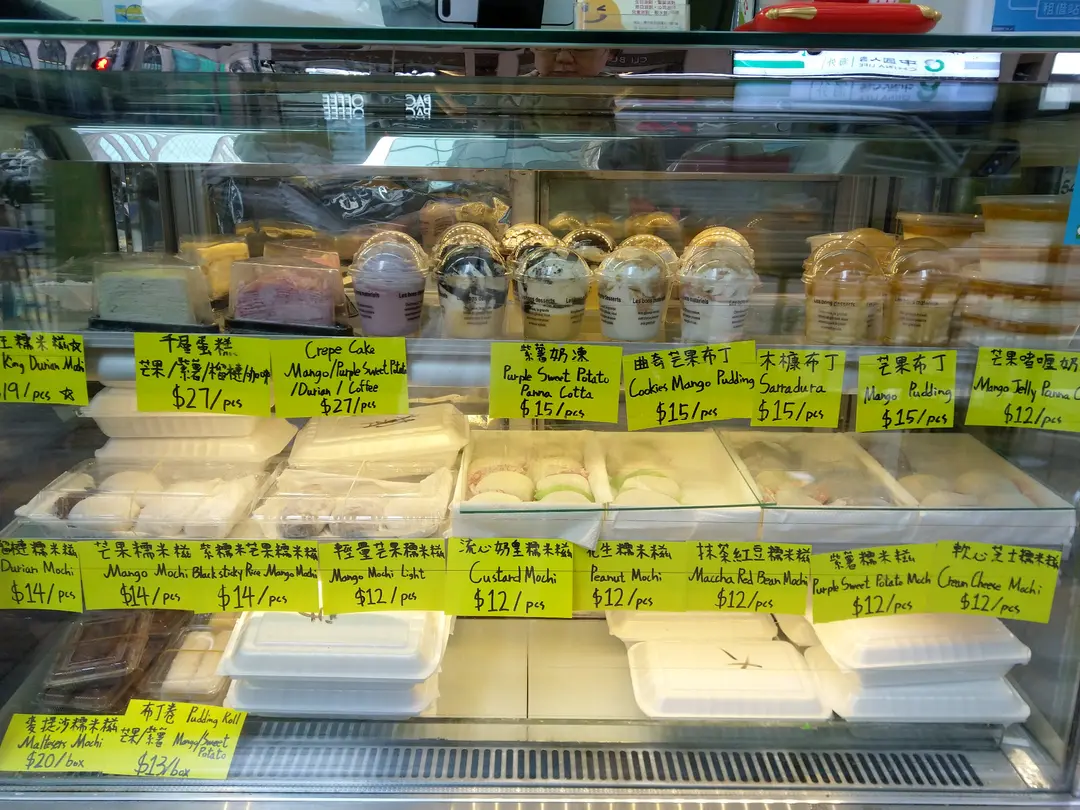 租借站
中國人壽
CHINA LIFE
海外
PAC
COFFEE
PAC
Les bons desserts
糯米糍☆
King Durian Mochi
19/pcs ☆
千層蛋糕
芒果/紫薯/榴槤/咖啡
$27/pcs
Crepe Cake
Mango/Purple Sweet Potato
/Durian / Coffee
$27/pcs
紫薯奶凍
Purple Sweet Potato
Panna Cotta
$15/pcs
曲奇芒果布丁
Cookies Mango Pudding
$15/pcs
木糠布丁
Sarradura
$15/pcs
芒果布丁
Mango Pudding
$15/pcs
芒果啫喱奶
Mango Jelly Panna C
$12/pcs
榴槤糯米糍
Durian Mochi
$14/pcs
芒果糯米糍
Mango Mochi
$14/pcs
紫糯米芒果糯米糍
Black sticky Rice Mango Mochi
$14/pcs
輕量芒果糯米糍
Mango Mochi Light
$12/pcs
流心奶皇糯米糍
Custard Mochi
$12/pcs
花生糯米糍
Peanut Mochi
$12/pcs
抹茶紅豆糯米糍
Maccha Red Bean Mochi
$12/pcs
紫薯糯米糍
Purple Sweet Potato Mochi
$12/pcs
軟心芝士糯米糍
Cream Cheese Mochi
$12/pcs
麥提沙糯米糍
Maltesers Mochi
$20/box
布丁卷 Pudding Roll
芒果/紫薯 Mango/Sweet
Potato
$13/box